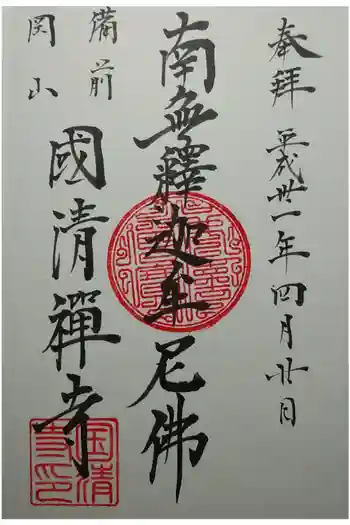 奉拝
平成廿一年四月廿日
南無釋迦牟尼佛
備前
岡山
國清禪寺
国清
寺印